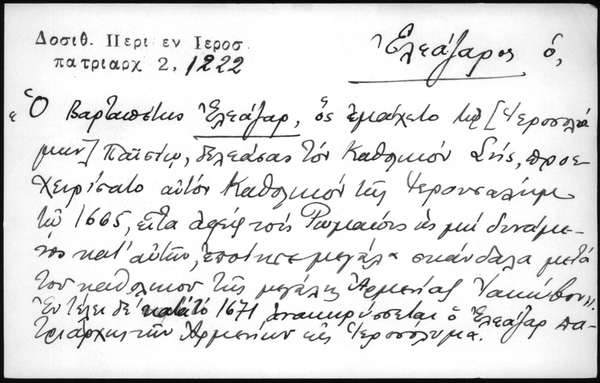 Δοσιθ. Περι εν Ιεροσ.
πατριαρχ 2, 1222
Ἐλεάζαρος ὁ,
« Ὁ Βαρταπέτης Ἐλεάζαρ, ὃς ἐμάχετο τῷ [Ἱεροσολύ
μων] Παϊσίῳ, δελεάσας τὸν Καθολικὸν Σίης, προε-
χειρίσατο αὐτὸν Καθολικὸν τῆς Ἱερουσαλὴμ
τῷ 1665, εἶτα ἀφεὶς τοὺς Ῥωμαίους ὡς μὴ δυνάμε-
νος κατ' αὐτῶν, ἐποίησε μεγάλα σκάνδαλα μετὰ
τοῦ καθολικοῦ τῆς μεγάλης Ἀρμενίας Ἰακώβου».
Ἐν τέλει δὲ κατὰ τὸ 1671 ἀνακηρύσσεται ὁ Ἐλεάζαρ πα-
τριάρχης τῶν Ἀρμενίων εἰς Ἱεροσόλυμα.